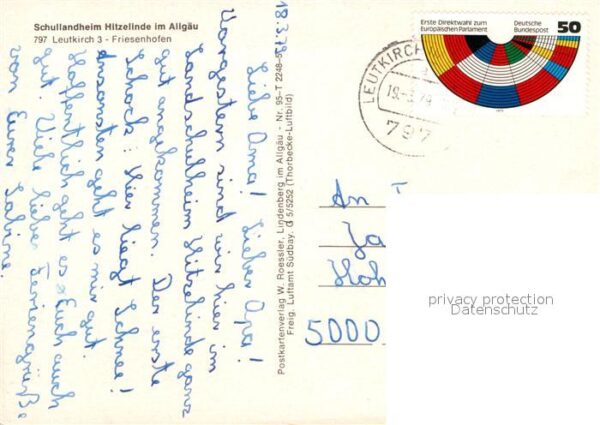 Schullandheim Hitzelinde im Allgäu
797 Leutkirch 3 - Friesenhofen
18.3.79
Liebe Oma! Lieber Opa!
Vorgestern sind wir hier im
Landschulheim Hitzelinde ganz
gut angekommen. Der erste
Schock: Hier liegt Schnee!
Ansonsten geht es mir gut.
Hoffentlich geht es Euch auch
gut. Viele liebe Feriengrüße
von Eurer Sabine.
Postkartenverlag W. Roessler, Lindenberg im Allgäu - Nr. 95-T 2248-5
Freig. Luftamt Südbay. G 5/5252 (Thorbecke-Luftbild)
Erste Direktwahl zum
Europäischen Parlament
Deutsche
Bundespost
50
LEUTKIRCH
19.-3.79
797
An
5000
privacy protection
Datenschutz